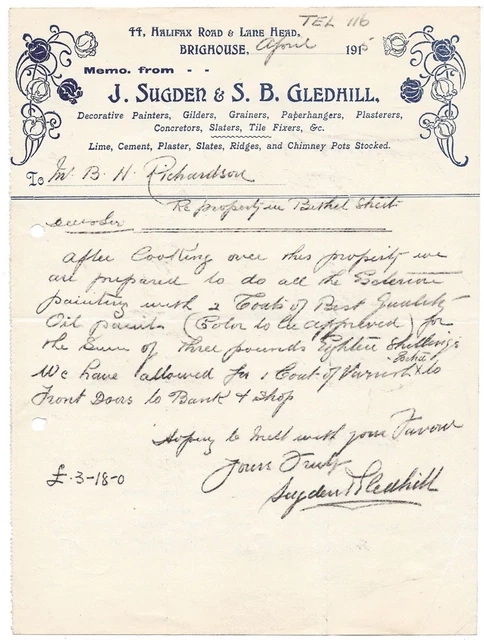 TEL 116
44, Halifax Road & Lane Head,
Brighouse, April 1915
Memo. from - -
J. Sugden & S. B. Gledhill,
Decorative Painters, Gilders, Grainers, Paperhangers, Plasterers,
Concretors, Slaters, Tile Fixers, &c.
Lime, Cement, Plaster, Slates, Ridges, and Chimney Pots Stocked.
To Mr B. H. Richardson
Re property in Bethel Street
After Looking over this property we
are prepared to do all the Exterior
painting with 2 Coats of Best Quality
Oil paint (Color to be approved) for
the Sum of three pounds Eighteen Shillings
We have allowed for 1 Coat of Varnish to
Front Doors to Bank & Shop
Hoping to Meet with your Favour
Yours Truly
£.3-18-0
Sugden & Gledhill